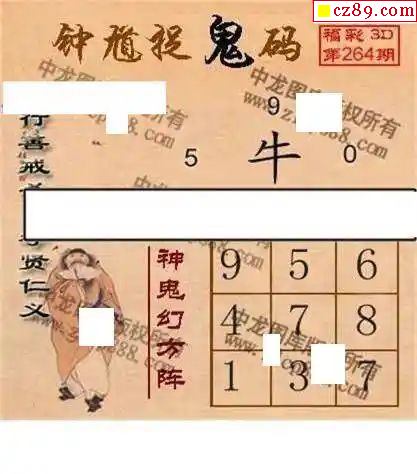 cz89.com
钟馗捉鬼码
福彩 3D
第264期
9
5 牛 0
行善戒
贤仁义
神鬼幻方阵
9 5 6
4 7 8
1 3 7
中龙图库版权所有